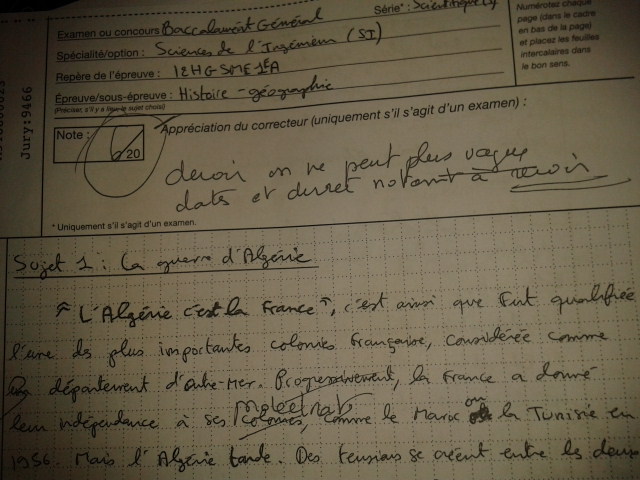 Série : Scientifique (S)
Examen ou concours : Baccalauréat Général
Spécialité/option : Sciences de l'Ingénieur (SI)
Repère de l'épreuve : 12HGSME1A
Épreuve/sous-épreuve : Histoire - géographie
(Préciser, s'il y a lieu, le sujet choisi)
Numérotez chaque
page (dans le cadre
en bas de la page)
et placez les feuilles
intercalaires dans
le bon sens.
Jury:9466
Note :
20
Appréciation du correcteur (uniquement s'il s'agit d'un examen) :
devoir on ne peut plus vague
dates et durée notamt à revoir
* Uniquement s'il s'agit d'un examen.
Sujet 1 : La guerre d'Algérie
"L'Algérie c'est la France", c'est ainsi que fut qualifiée
l'une des plus importantes colonies française, considérée comme
département d'outre-Mer. Progressivement, la France a donné
protectorats
leur indépendance à ses colonies, comme le Maroc ou la Tunisie en
1956. Mais l'Algérie tarde. Des tensions se créent entre les deux